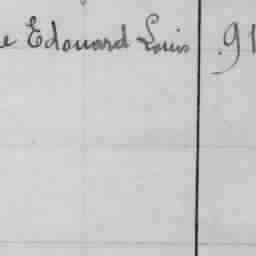 e Edouard Louis 91